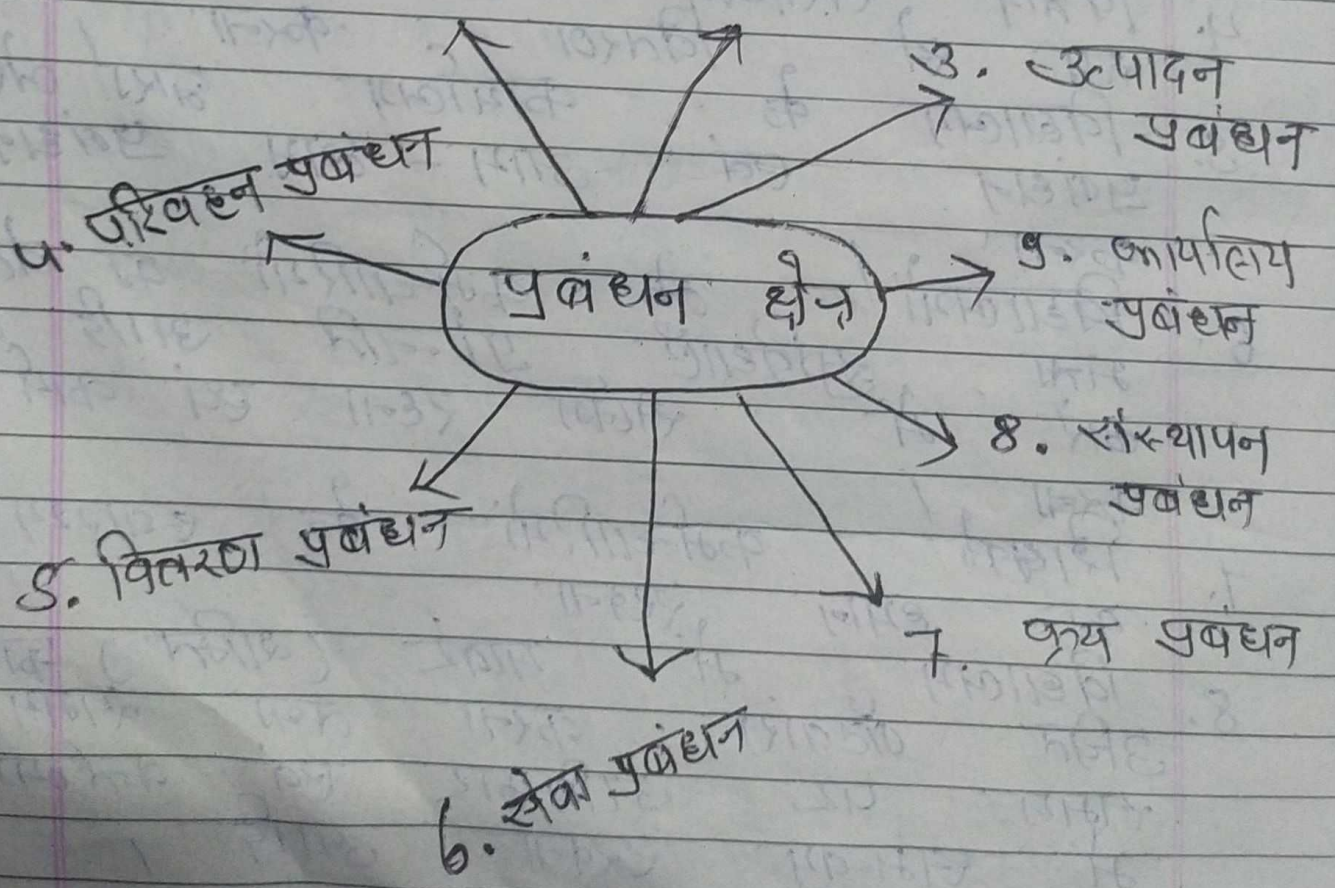 3. उत्पादन
प्रबंधन
4. परिवहन प्रबंधन
प्रबंधन क्षेत्र
9. कार्यालय
प्रबंधन
8. संस्थापन
प्रबंधन
5. वितरण प्रबंधन
7. क्रय प्रबंधन
6. सेवा प्रबंधन